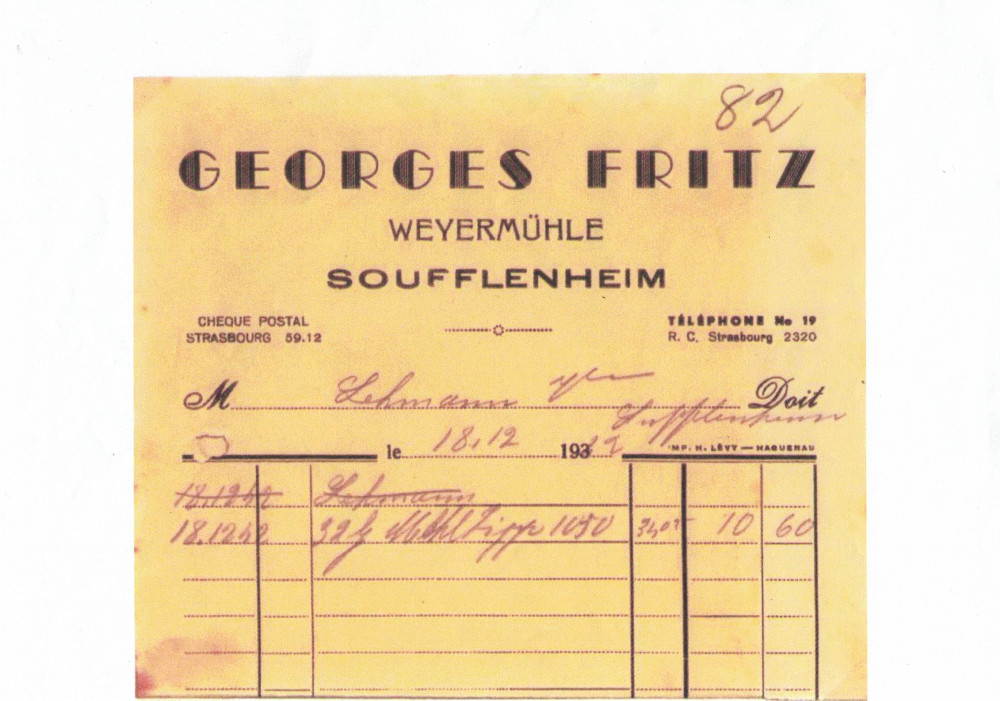 82
GEORGES FRITZ
WEYERMÜHLE
SOUFFLENHEIM
CHEQUE POSTAL
STRASBOURG 59.12
TÉLÉPHONE No 19
R. C. Strasbourg 2320
M Lehmann Doit
Sufflenheim
le 18.12 193
IMP. H. LÉVY — HAGUENAU
18.1242 Lehmann
18.1242 Mehl 10 60